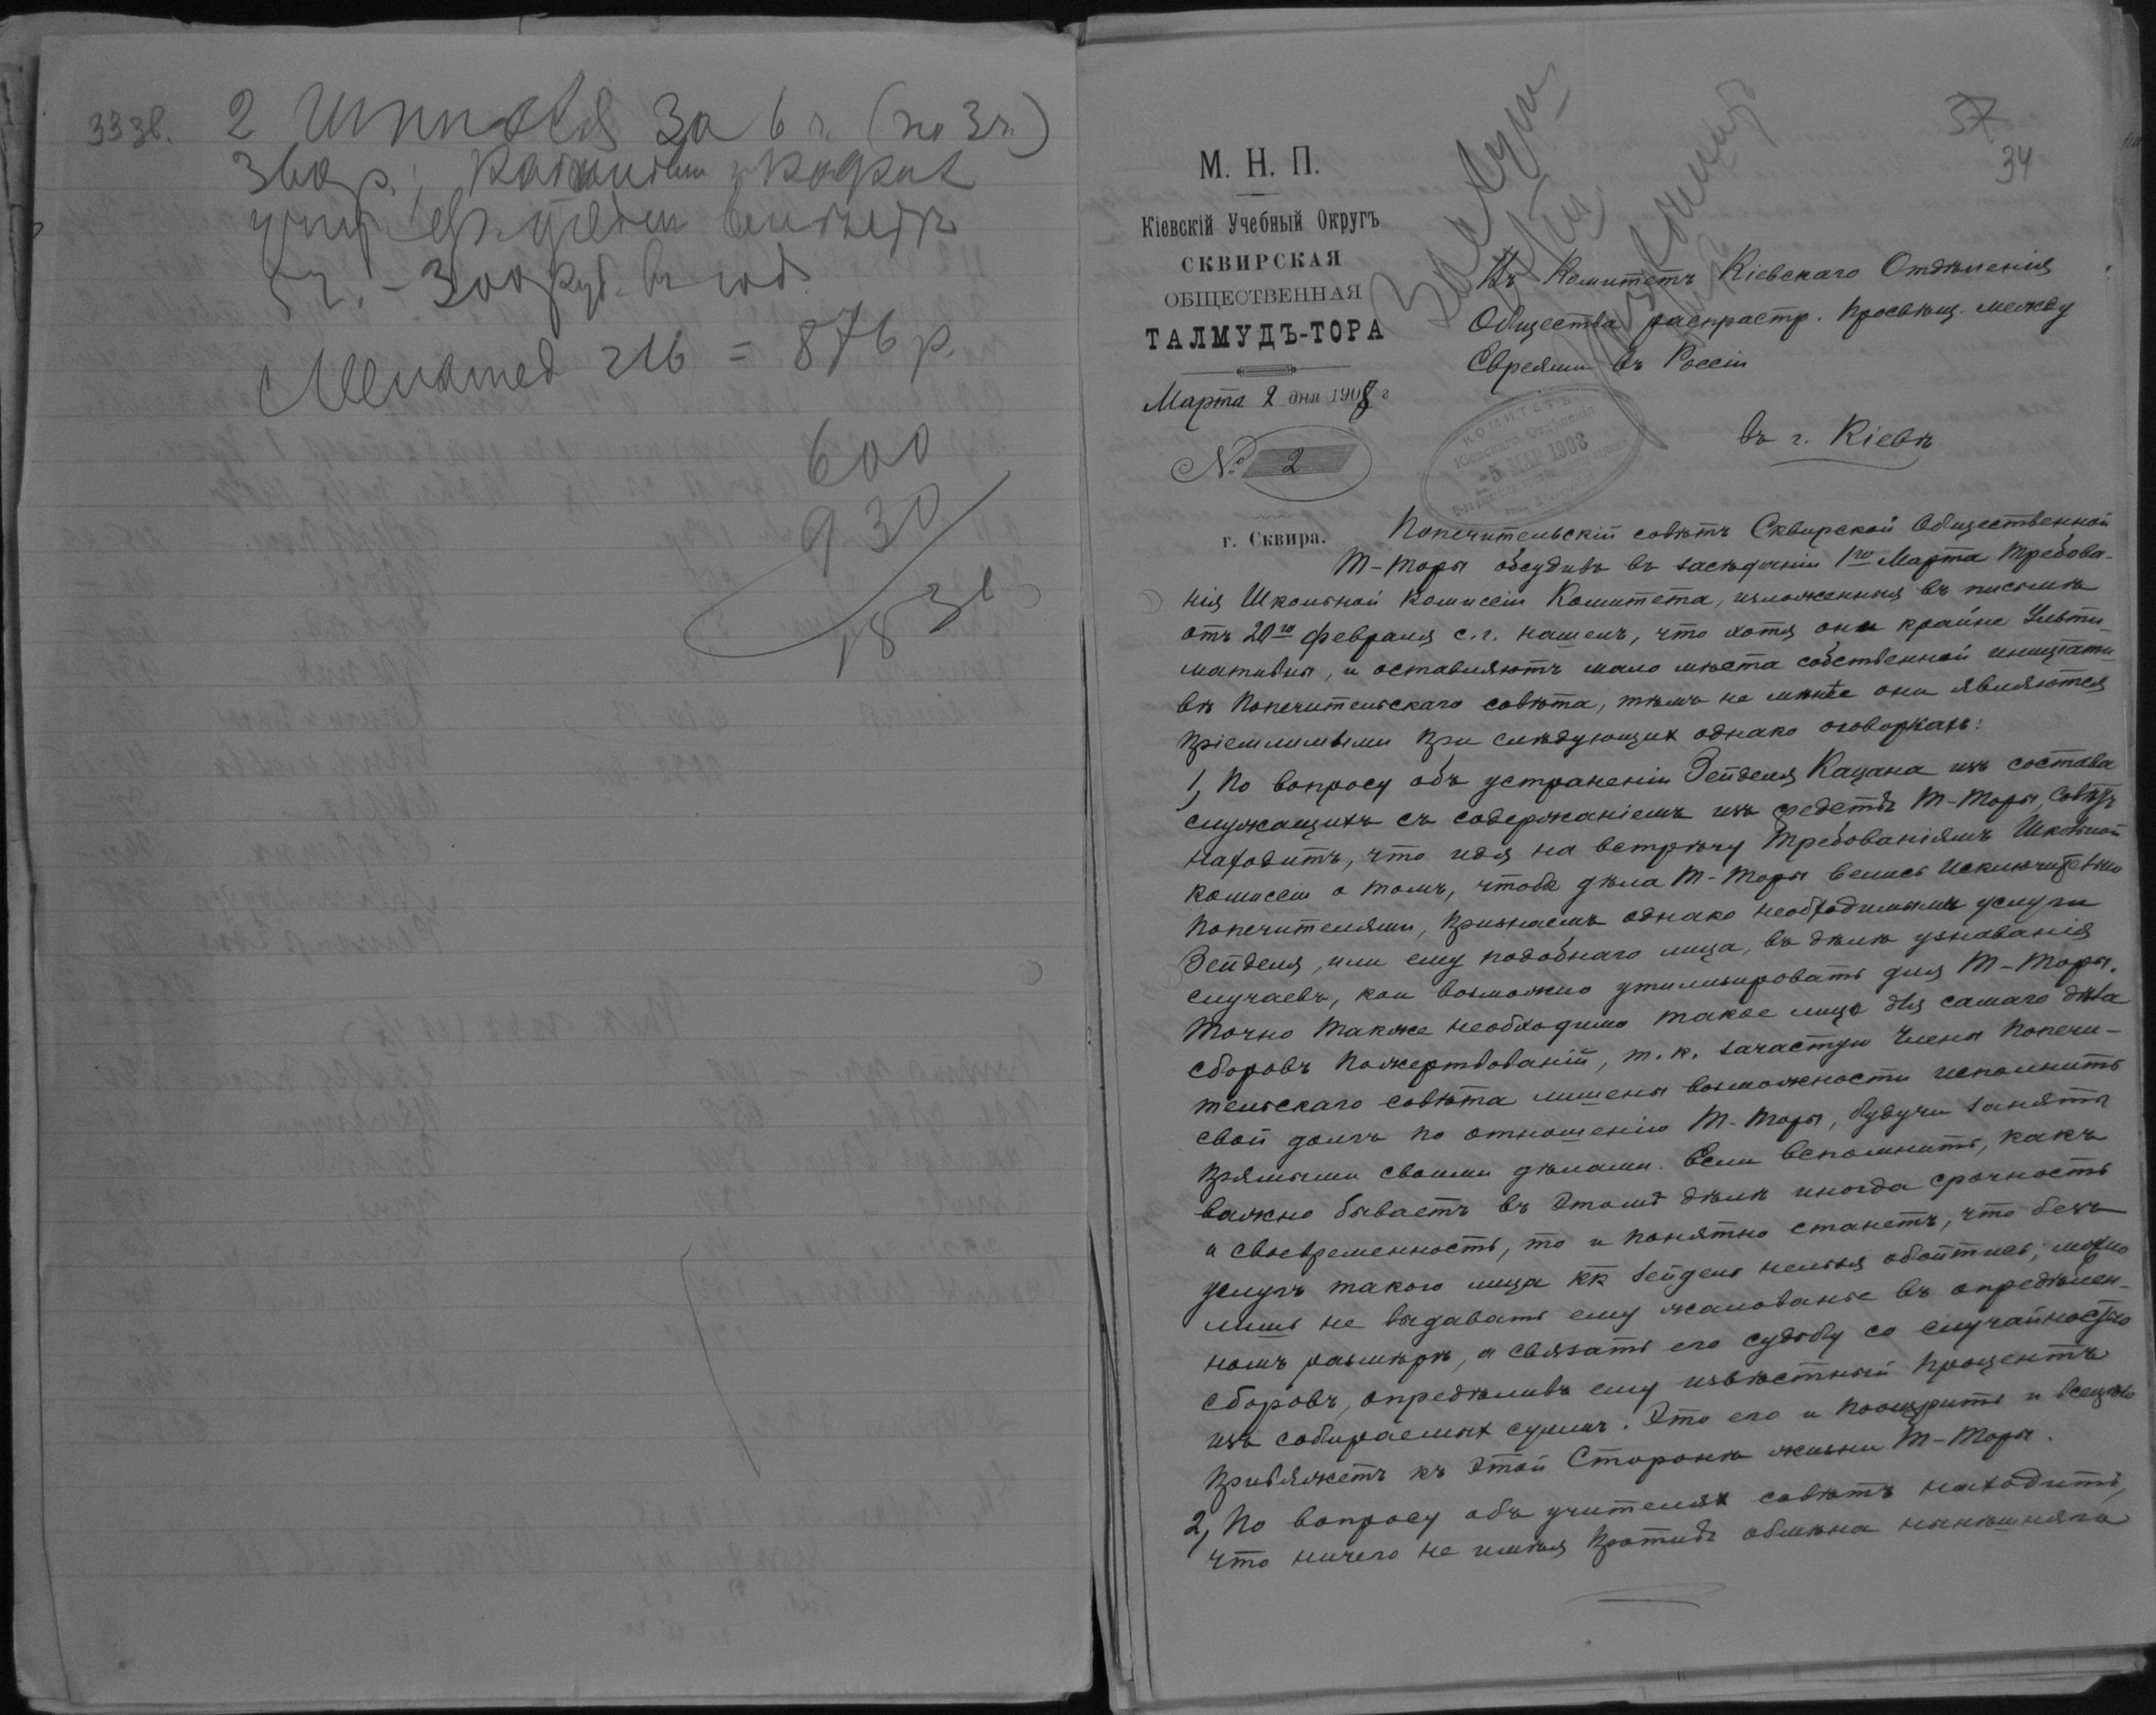 33 зв.
2 за 6 ч. (по 3 ч.)
360 р.;
5 ч. - 300 руб. въ годъ
216 = 876 р.
600
930
57
34
М. Н. П.
Кіевскій Учебный Округъ
СКВИРСКАЯ
ОБЩЕСТВЕННАЯ
ТАЛМУДЪ-ТОРА
Марта 2 дня 1908 г
№ 2
г. Сквира.
Въ Комитетъ Кіевскаго Отдѣленія
Общества распрастр. просвѣщ. между
Евреями въ Россіи
въ г. Кіевѣ
КОМИТЕТЪ
Кіевскаго Отдѣленія
5 МАР 1908
Попечительскій совѣтъ Сквирской Общественной
Т-Торы обсудивъ въ засѣданіи 1го Марта требова-
нія Школьной Комиссіи Комитета, изложенныя въ письмѣ
отъ 20го февраля с.г. нашелъ, что хотя они крайне ульти-
мативны, и оставляютъ мало мѣста собственной иниціати-
вѣ Попечительскаго совѣта, тѣмъ не менѣе они являются
пріемлимыми при слѣдующих однако оговоркахъ:
1, По вопросу объ устраненіи Зейделя Кацана изъ состава
служащихъ съ содержаніемъ изъ средствъ Т-Торы, Совѣтъ
находитъ, что идя на встрѣчу требованіямъ Школьной
комиссіи о томъ, чтобы дѣла Т-Торы велись исключительно
Попечителями, признаемъ однако необходимыми услуги
Зейделя, или ему подобнаго лица, въ дѣлѣ узнаванія
случаевъ, кои возможно утилизировать для Т-Торы.
Точно также необходимо такое лицо для самаго дѣла
сборовъ пожертвованій, т.к. зачастую члены Попечи-
тельскаго совѣта лишены возможности исполнить
свой долгъ по отношенію Т-Торы, будучи заняты
прямыми своими дѣлами. Если вспомнить, какъ
важно бываетъ въ этомъ дѣлѣ иногда срочность
и своевременность, то и понятно станетъ, что безъ
услугъ такого лица кк Зейдель нельзя обойтись; можно
лишь не выдавать ему жалованье въ опредѣлен-
номъ размѣрѣ, а связать его судьбу со случайностью
сборовъ, опредѣливъ ему извѣстный процентъ
изъ собираемых суммъ. Это его и поощритъ и всецѣло
привяжетъ къ этой Сторонѣ жизни Т-Торы.
2, По вопросу объ учителях совѣтъ находитъ,
что ничего не имѣя противъ обмѣна нынѣшняго